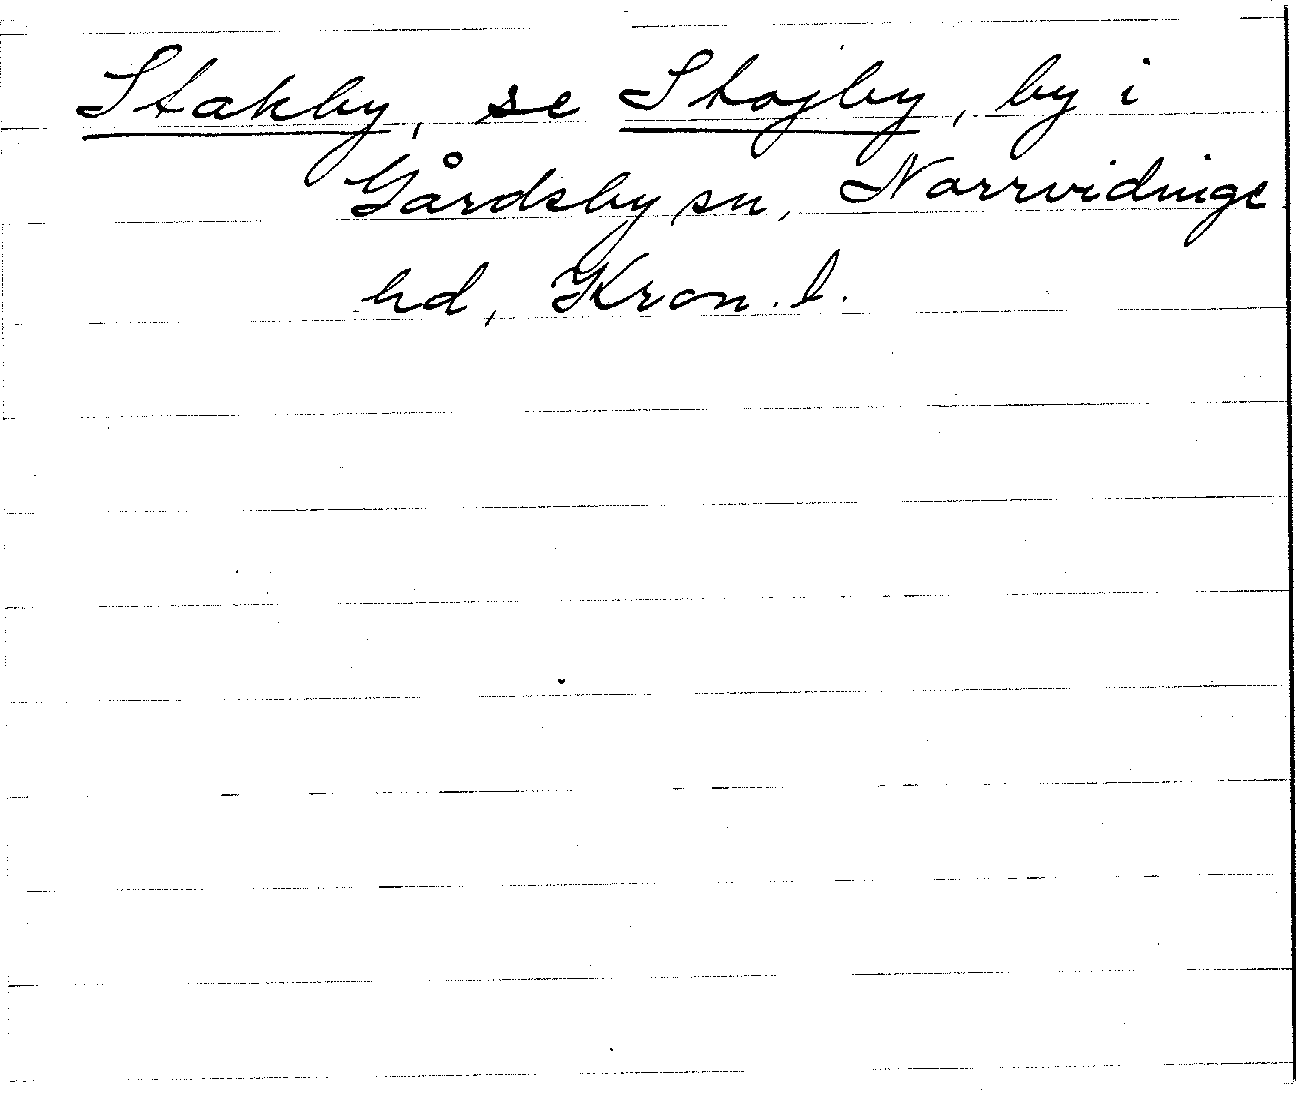 Stakby, se Stojby, by i
Gårdsby sn, Norrvidinge
hd, Kron. l.